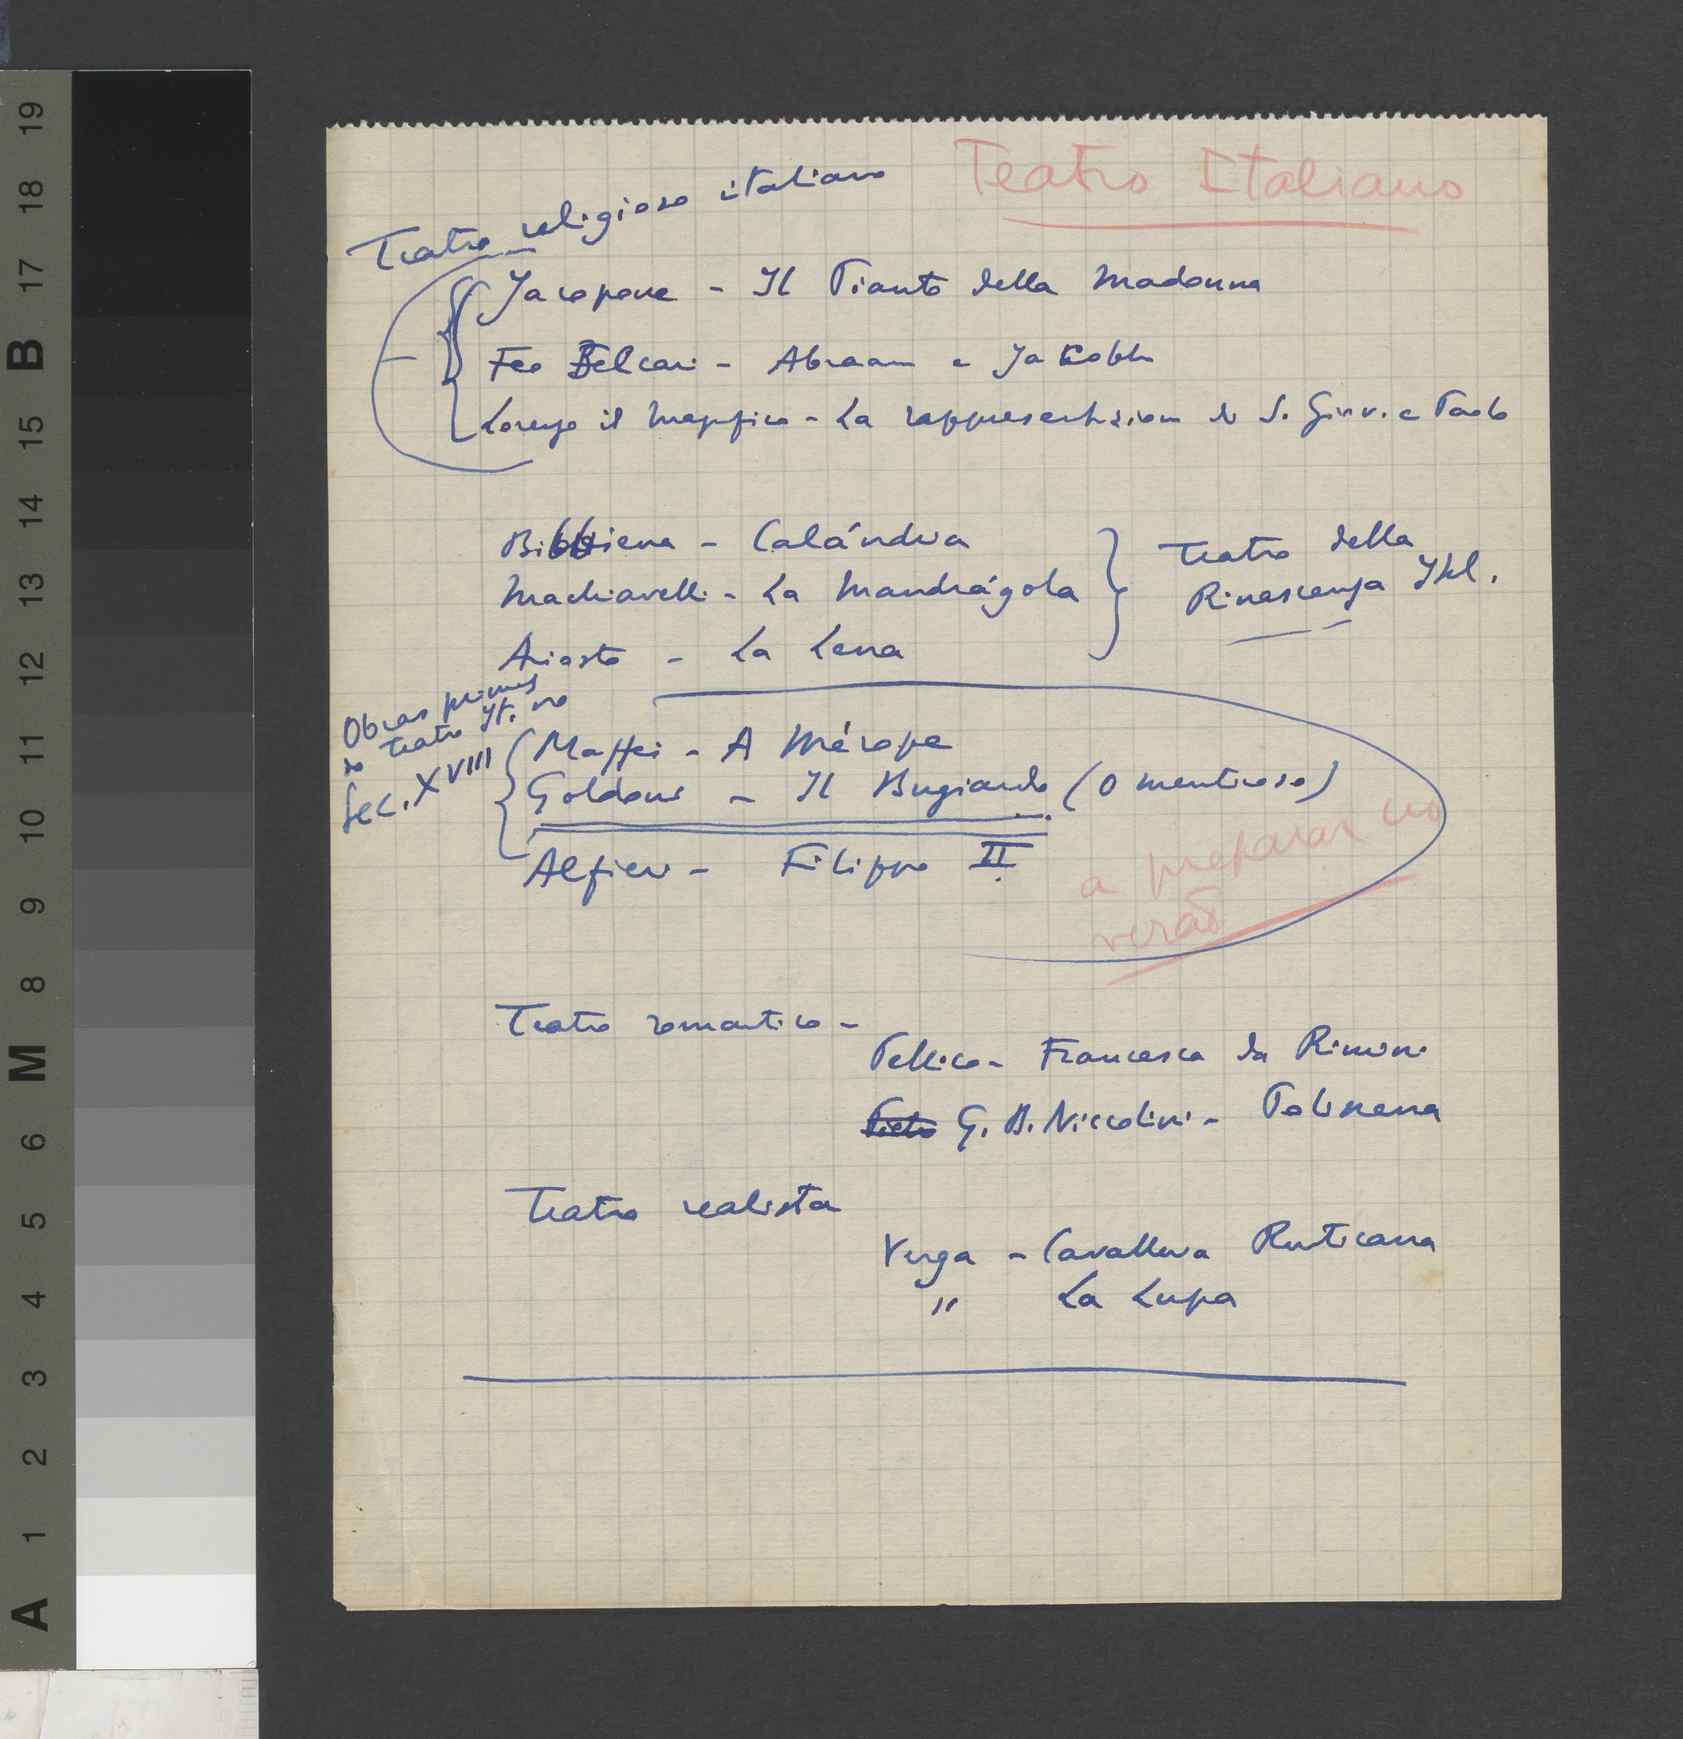 Teatro Italiano
Teatro religioso italiano
Jacopone - Il Pianto della Madonna
Feo Belcari - Abraam e Jacobb
Lorenzo il Magnifico - La rappresentazione di S. Giov. e Paolo
Bibbiena - Calándria
Machiavelli - La Mandrágola
Ariosto - La Lena
Teatro della
Rinascenza Ital.
Obras primas
do teatro It. no
Sec. XVIII
Maffei - A Mérope
Goldoni - Il Bugiardo (O mentiroso)
Alfieri - Filippo II
a preparar no
verão
Teatro romantico -
Pellico - Francesca da Rimini
G. B. Niccolini - Polixena
Teatro realista
Verga - Cavalleria Rusticana
" La Lupa
A 1 2 3 4 5 6 M 8 9 10 11 12 13 14 15 B 17 18 19